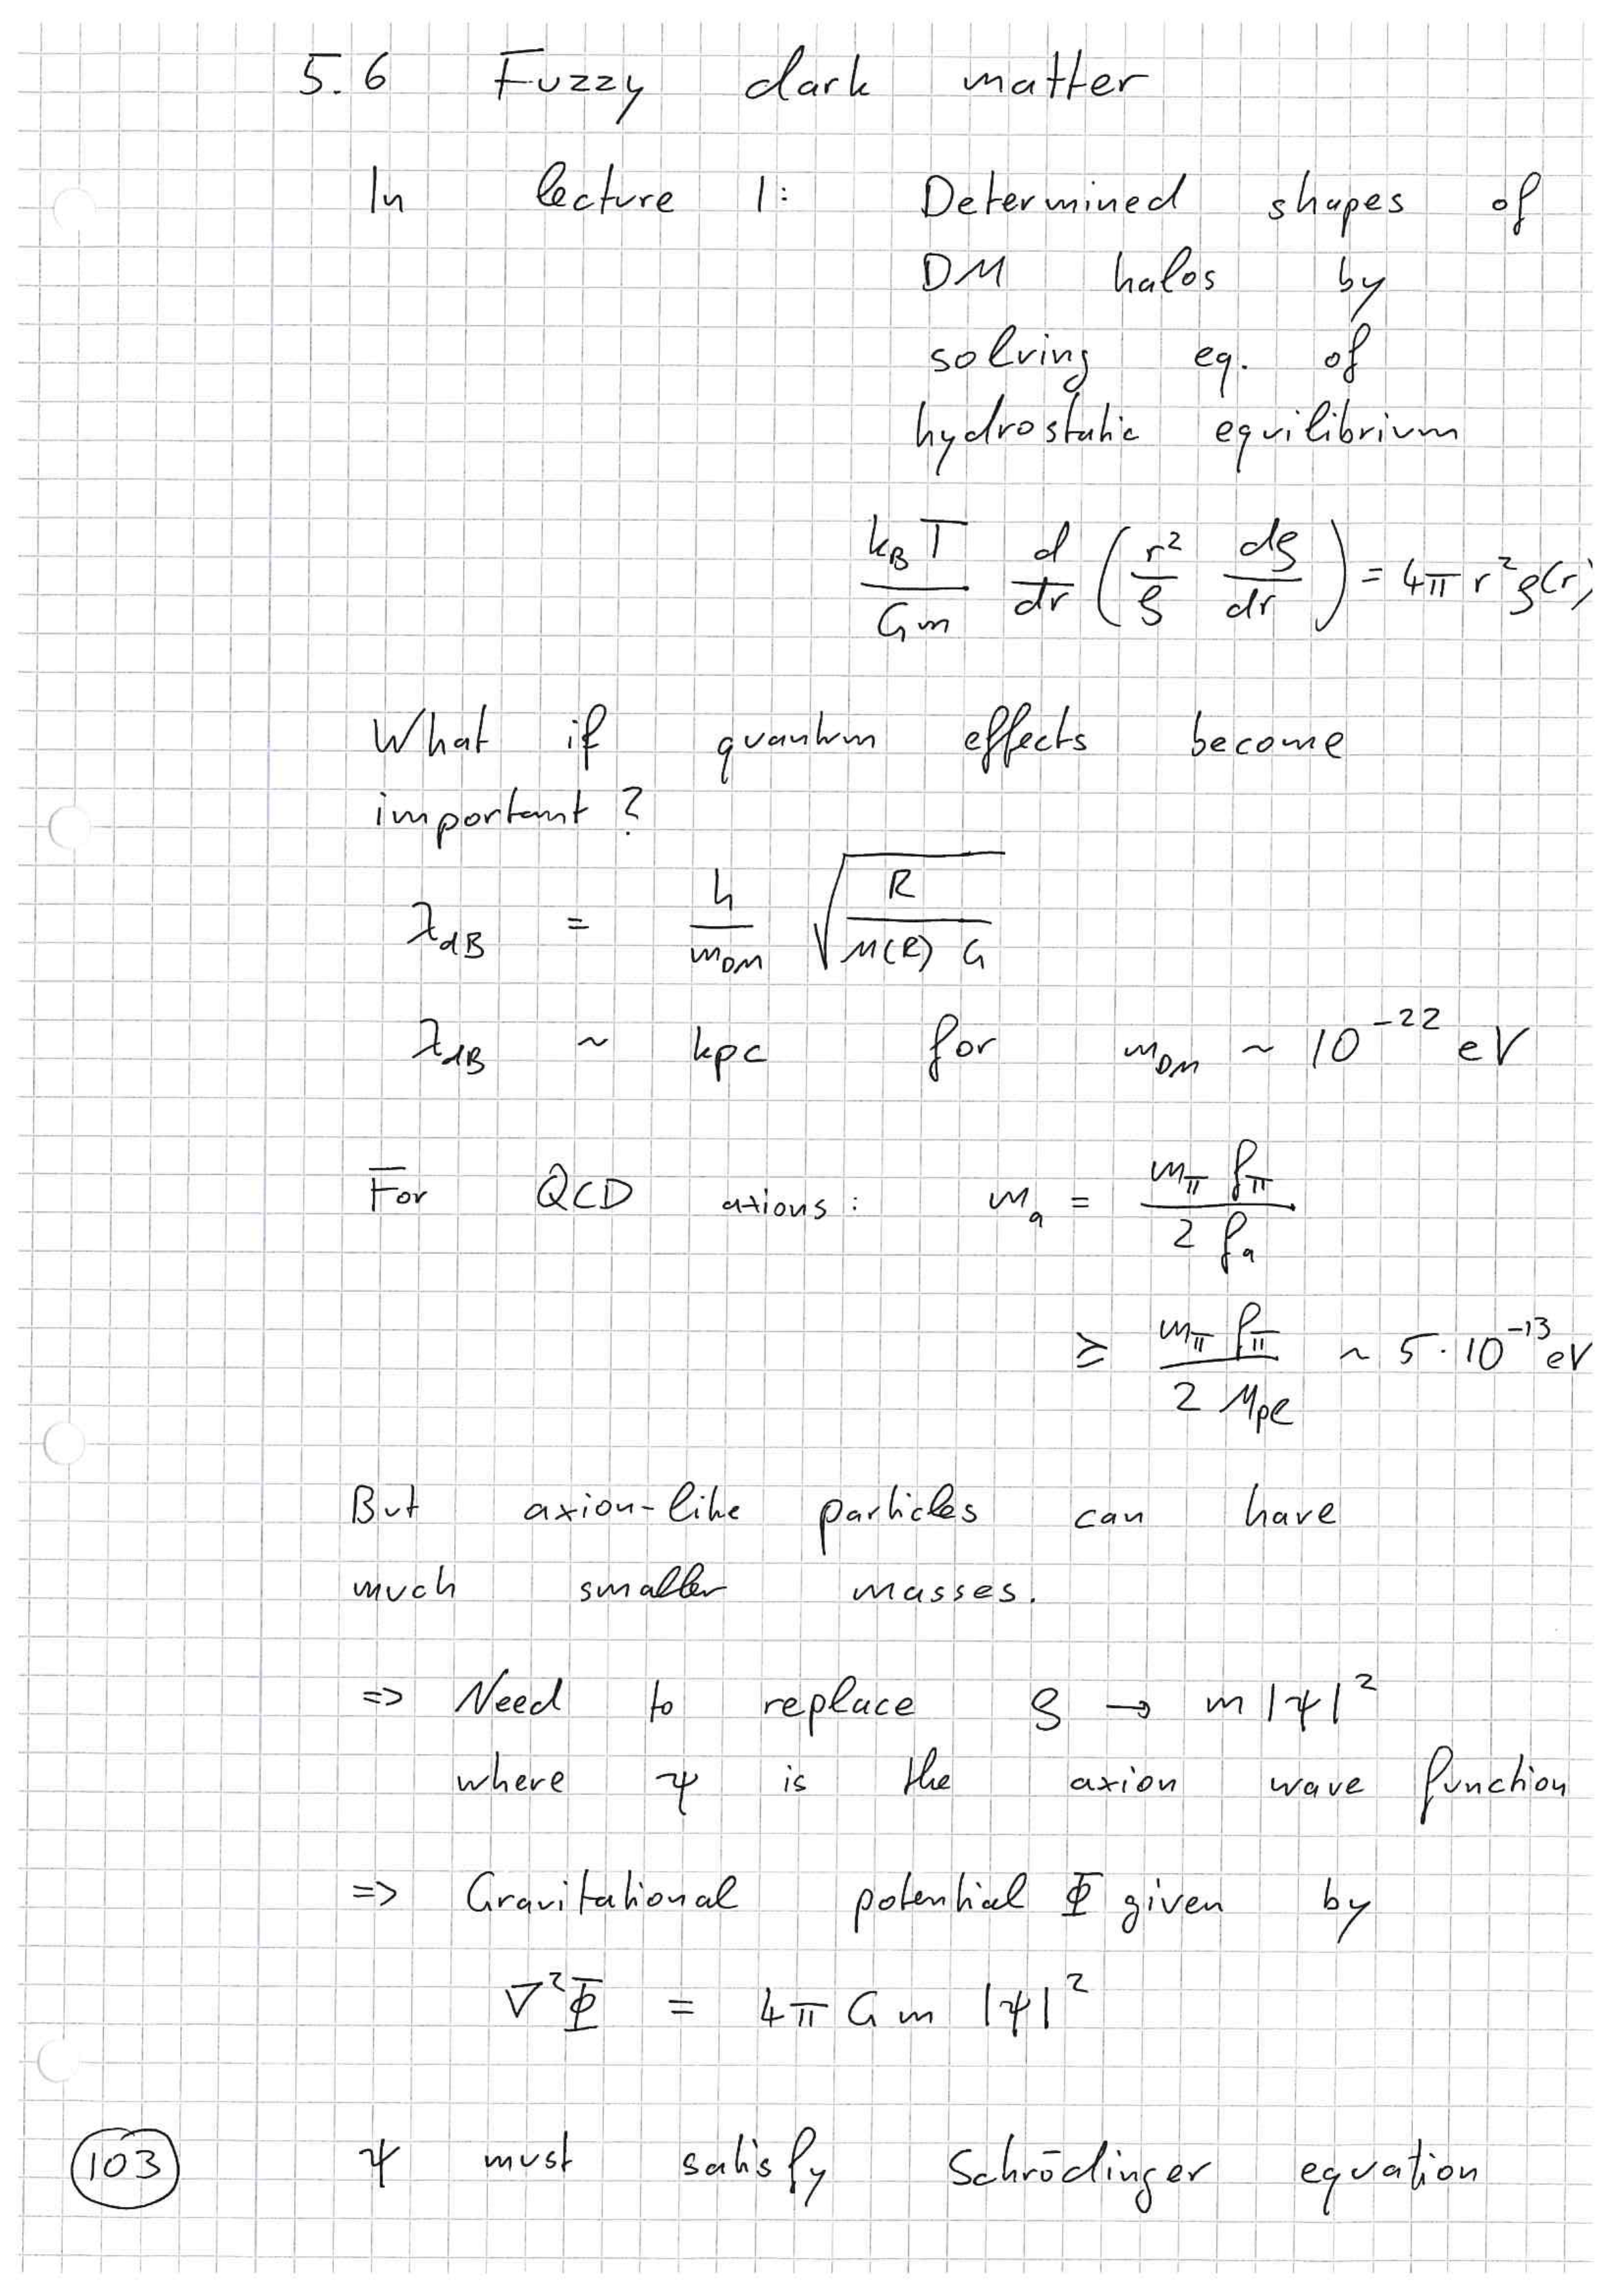 5.6 Fuzzy dark matter
In lecture 1: Determined shapes of
DM halos by
solving eq. of
hydrostatic equilibrium
k_B T / G m d/dr ( r² / ρ dρ / dr ) = 4π r² ρ(r)
What if quantum effects become
important ?
λ_dB = h / m_DM √( R / M(R) G )
λ_dB ~ kpc for m_DM ~ 10⁻²² eV
For QCD axions : m_a = m_π f_π / 2 f_a
≥ m_π f_π / 2 M_Pl ~ 5 · 10⁻¹³ eV
But axion-like particles can have
much smaller masses.
=> Need to replace ρ → m |ψ|²
where ψ is the axion wave function
=> Gravitational potential Φ given by
∇²Φ = 4π G m |ψ|²
103 ψ must satisfy Schrödinger equation